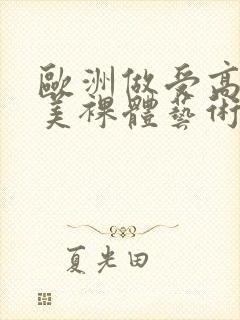 歐洲做受高
美裸體藝術
夏光田